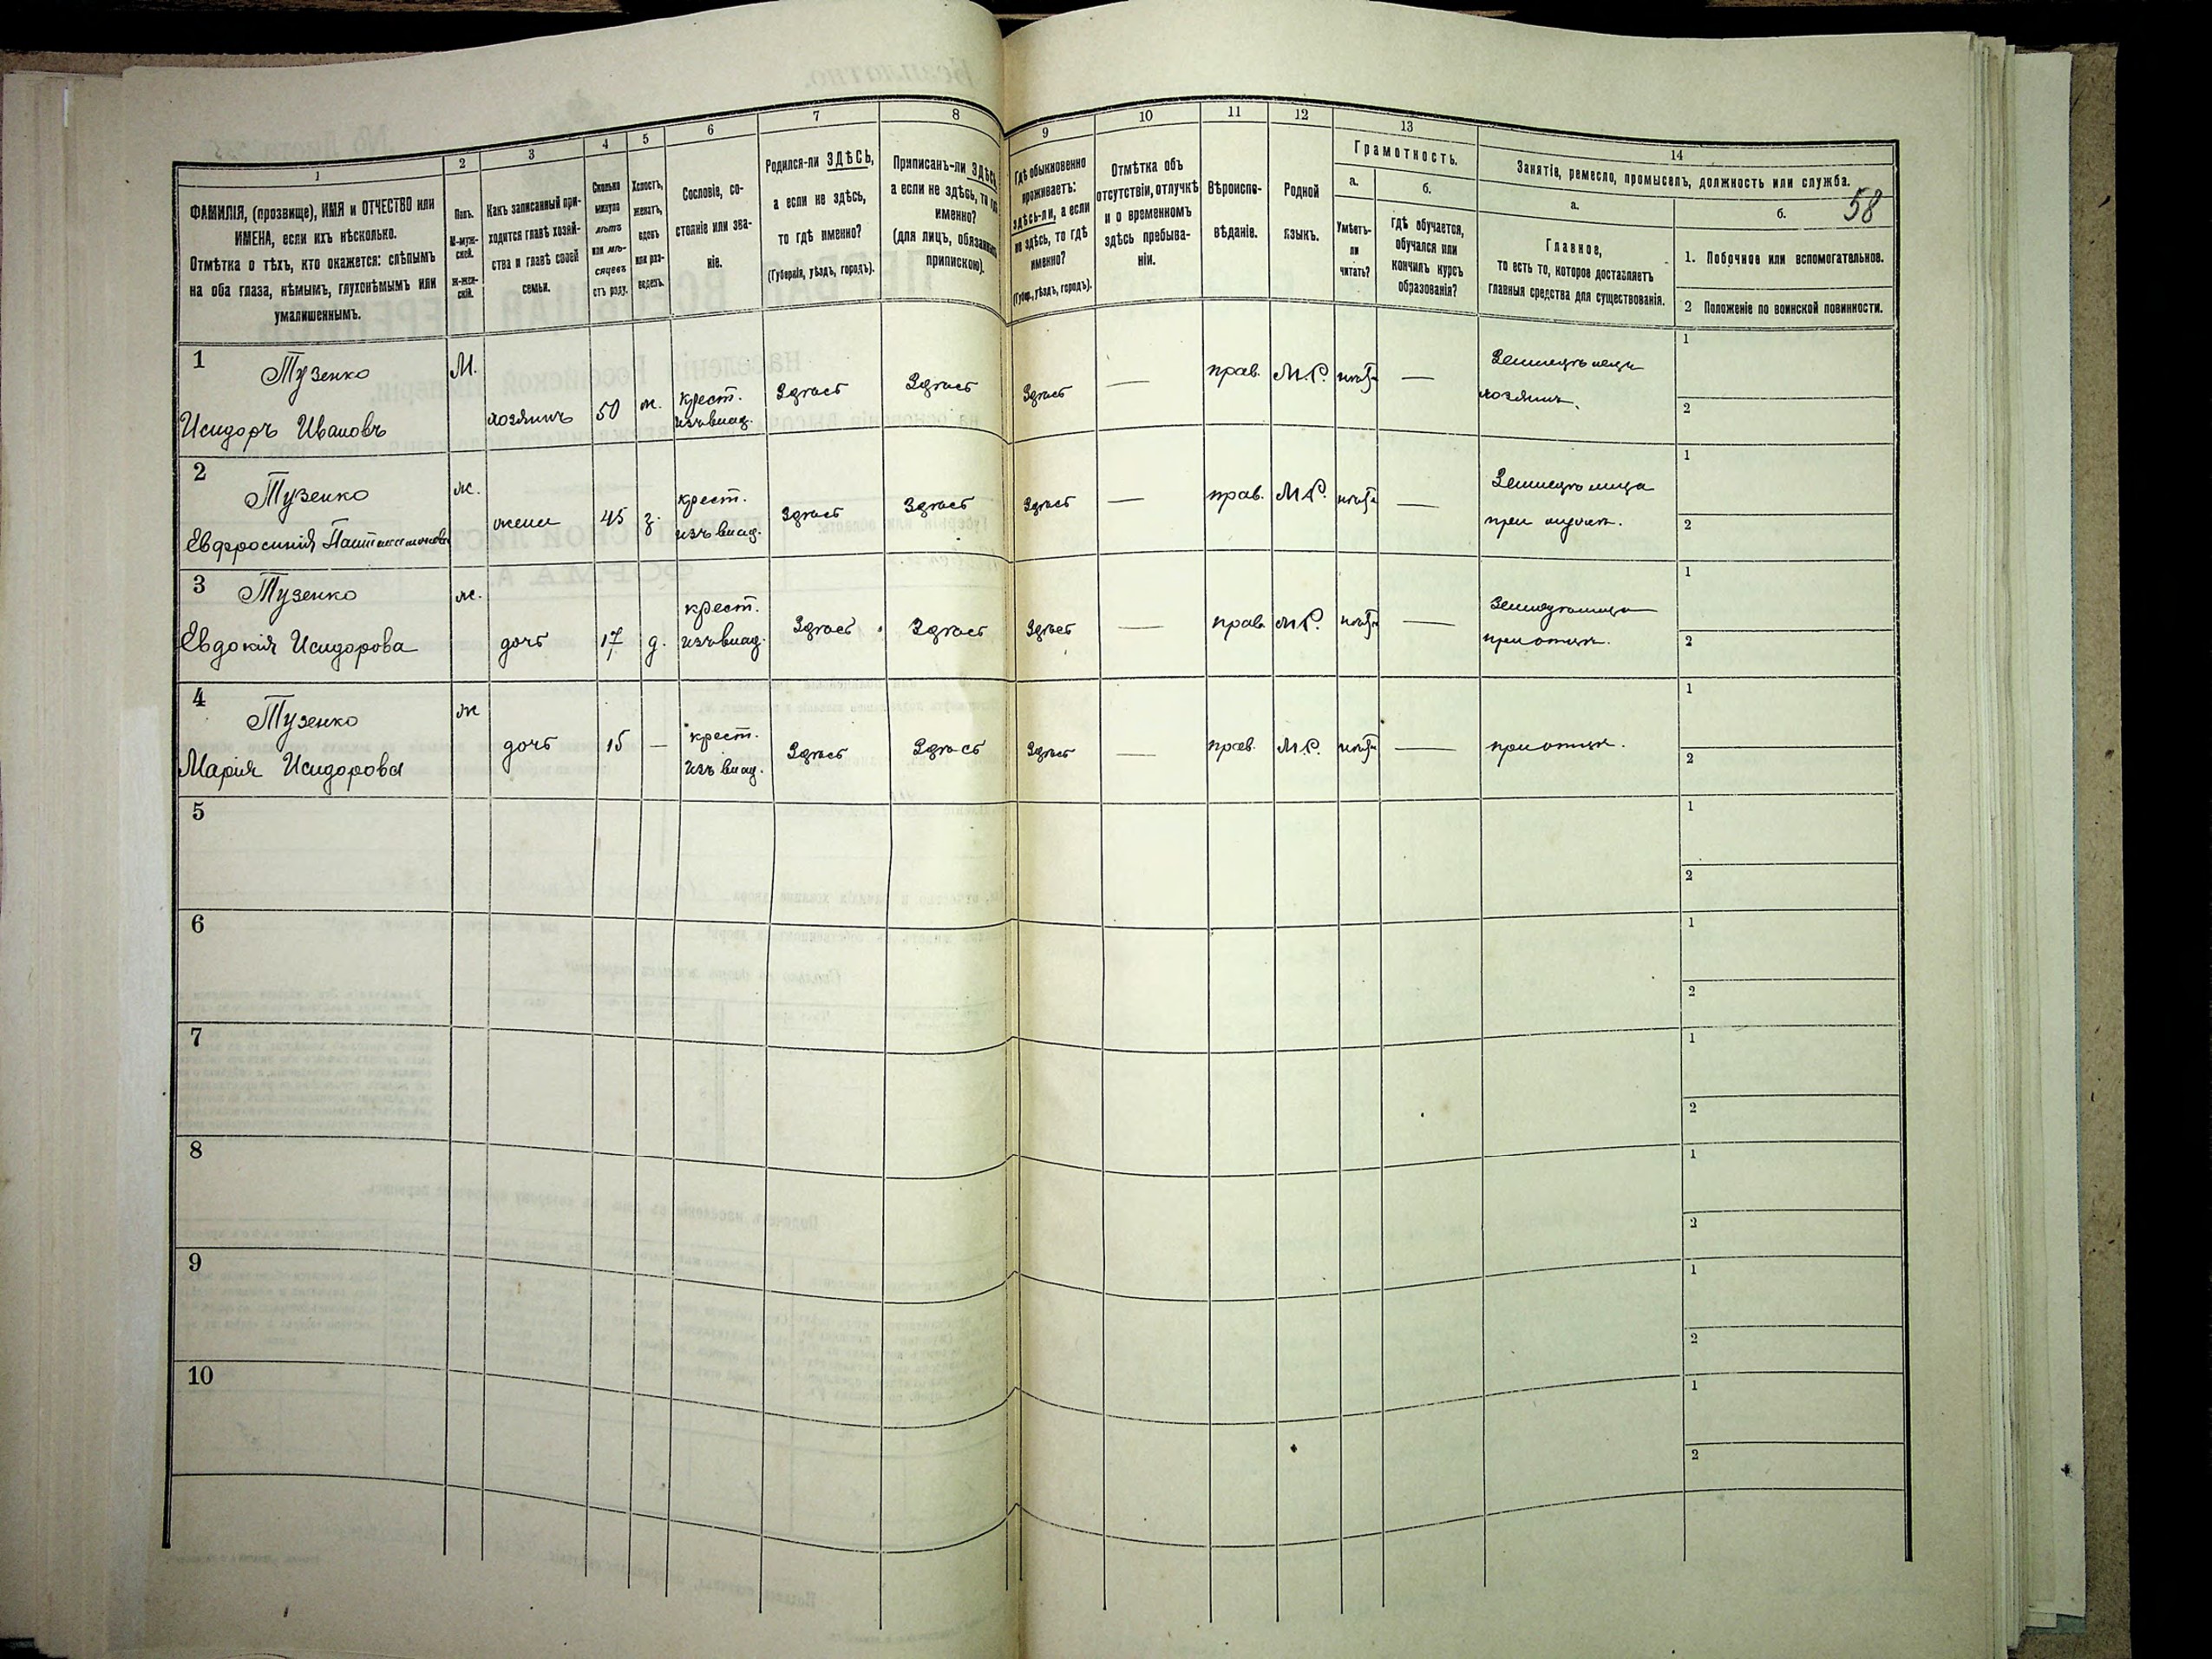 58
1
2
3
4
5
6
7
8
9
10
11
12
13
14
ФАМИЛІЯ, (прозвище), ИМЯ и ОТЧЕСТВО или
ИМЕНА, если ихъ нѣсколько.
Отмѣтка о тѣхъ, кто окажется: слѣпымъ
на оба глаза, нѣмымъ, глухонѣмымъ или
умалишеннымъ.
Полъ.
М-муж-
ской.
Ж-жен-
скій.
Какъ записанный при-
ходится главѣ хозяй-
ства и главѣ своей
семьи.
Сколько
минуло
лѣтъ
или мѣ-
сяцевъ
отъ роду.
Холостъ,
женатъ,
вдовъ
или раз-
веденъ.
Сословіе, со-
стояніе или зва-
ніе.
Родился-ли ЗДѢСЬ,
а если не здѣсь,
то гдѣ именно?
(Губернія, уѣздъ, городъ).
Приписанъ-ли ЗДѢСЬ,
а если не здѣсь, то гдѣ
именно?
(для лицъ, обязанныхъ
припискою).
Гдѣ обыкновенно
проживаетъ:
здѣсь-ли, а если
не здѣсь, то гдѣ
именно?
(Губер., уѣздъ, городъ).
Отмѣтка объ
отсутствіи, отлучкѣ
и о временномъ
здѣсь пребыва-
ніи.
Вѣроиспо-
вѣданіе.
Родной
языкъ.
Грамотность.
а.
Умѣетъ-
ли
читать?
б.
гдѣ обучается,
обучался или
кончилъ курсъ
образованія?
Занятіе, ремесло, промыселъ, должность или служба.
а.
Главное,
то есть то, которое доставляетъ
главныя средства для существованія.
б.
1. Побочное или вспомогательное.
2 Положеніе по воинской повинности.
1 Тузенко М. хозяинъ 50 ж. крест. Здѣсь Здѣсь Здѣсь — прав. М.Р. нѣтъ — 1
Исидоръ Ивановъ изъ влад. хозяинъ. 2
2 Тузенко ж. жена 45 з. крест. Здѣсь Здѣсь Здѣсь — прав. М.Р. нѣтъ — 1
Евфросинія изъ влад. при 2
3 Тузенко ж. дочь 17 д. крест. Здѣсь Здѣсь Здѣсь — прав. М.Р. нѣтъ — 1
Евдокія Исидорова изъ влад. при отцѣ. 2
4 Тузенко ж дочь 15 — крест. Здѣсь Здѣсь Здѣсь — прав. М.Р. нѣтъ — при отцѣ. 1
Марія Исидорова изъ влад. 2
5 1
2
6 1
2
7 1
2
8 1
2
9 1
2
10 1
2